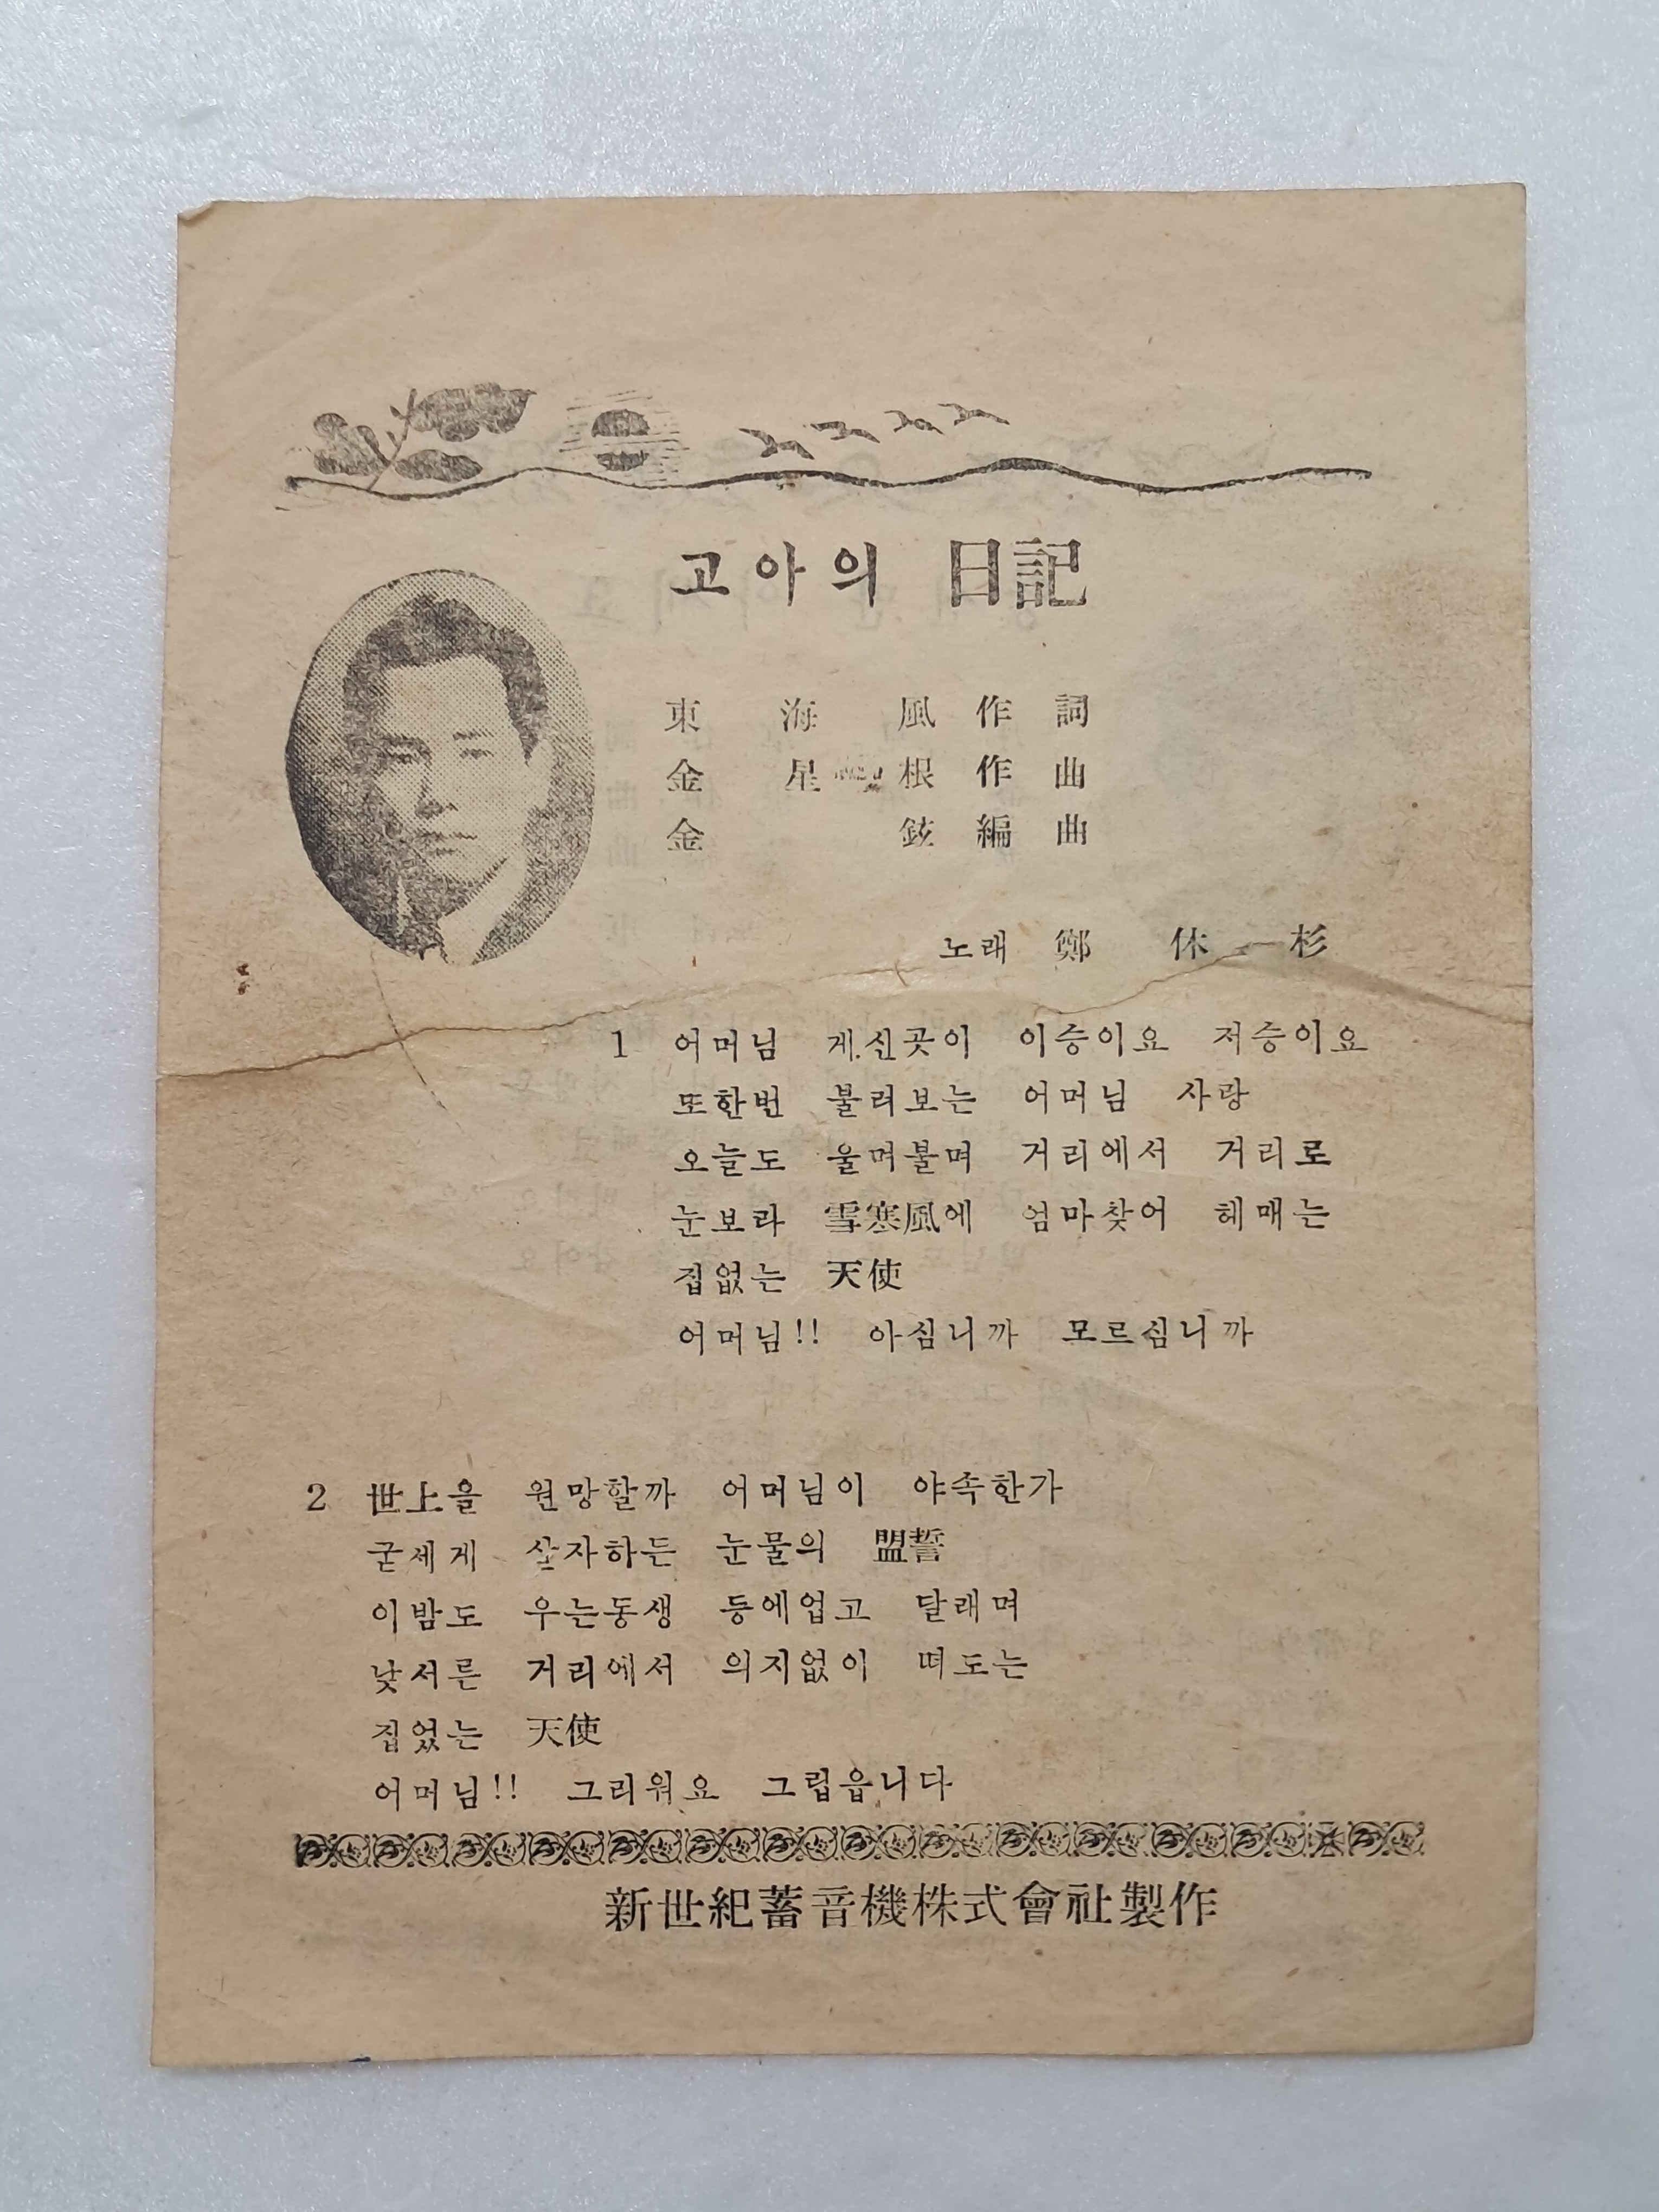 고아의 日記
東海風 作詞
金星根 作曲
金鉉 編曲
노래 鄭休杉
1 어머님 게신곳이 이승이요 저승이요
또한번 불러보는 어머님 사랑
오늘도 울며불며 거리에서 거리로
눈보라 雪寒風에 엄마찾어 헤매는
집없는 天使
어머님!! 아심니까 모르심니까
2 世上을 원망할까 어머님이 야속한가
굳세게 살자하든 눈물의 盟誓
이밤도 우는동생 등에업고 달래며
낯서른 거리에서 의지없이 떠도는
집었는 天使
어머님!! 그리워요 그립읍니다
新世紀蓄音機株式會社製作